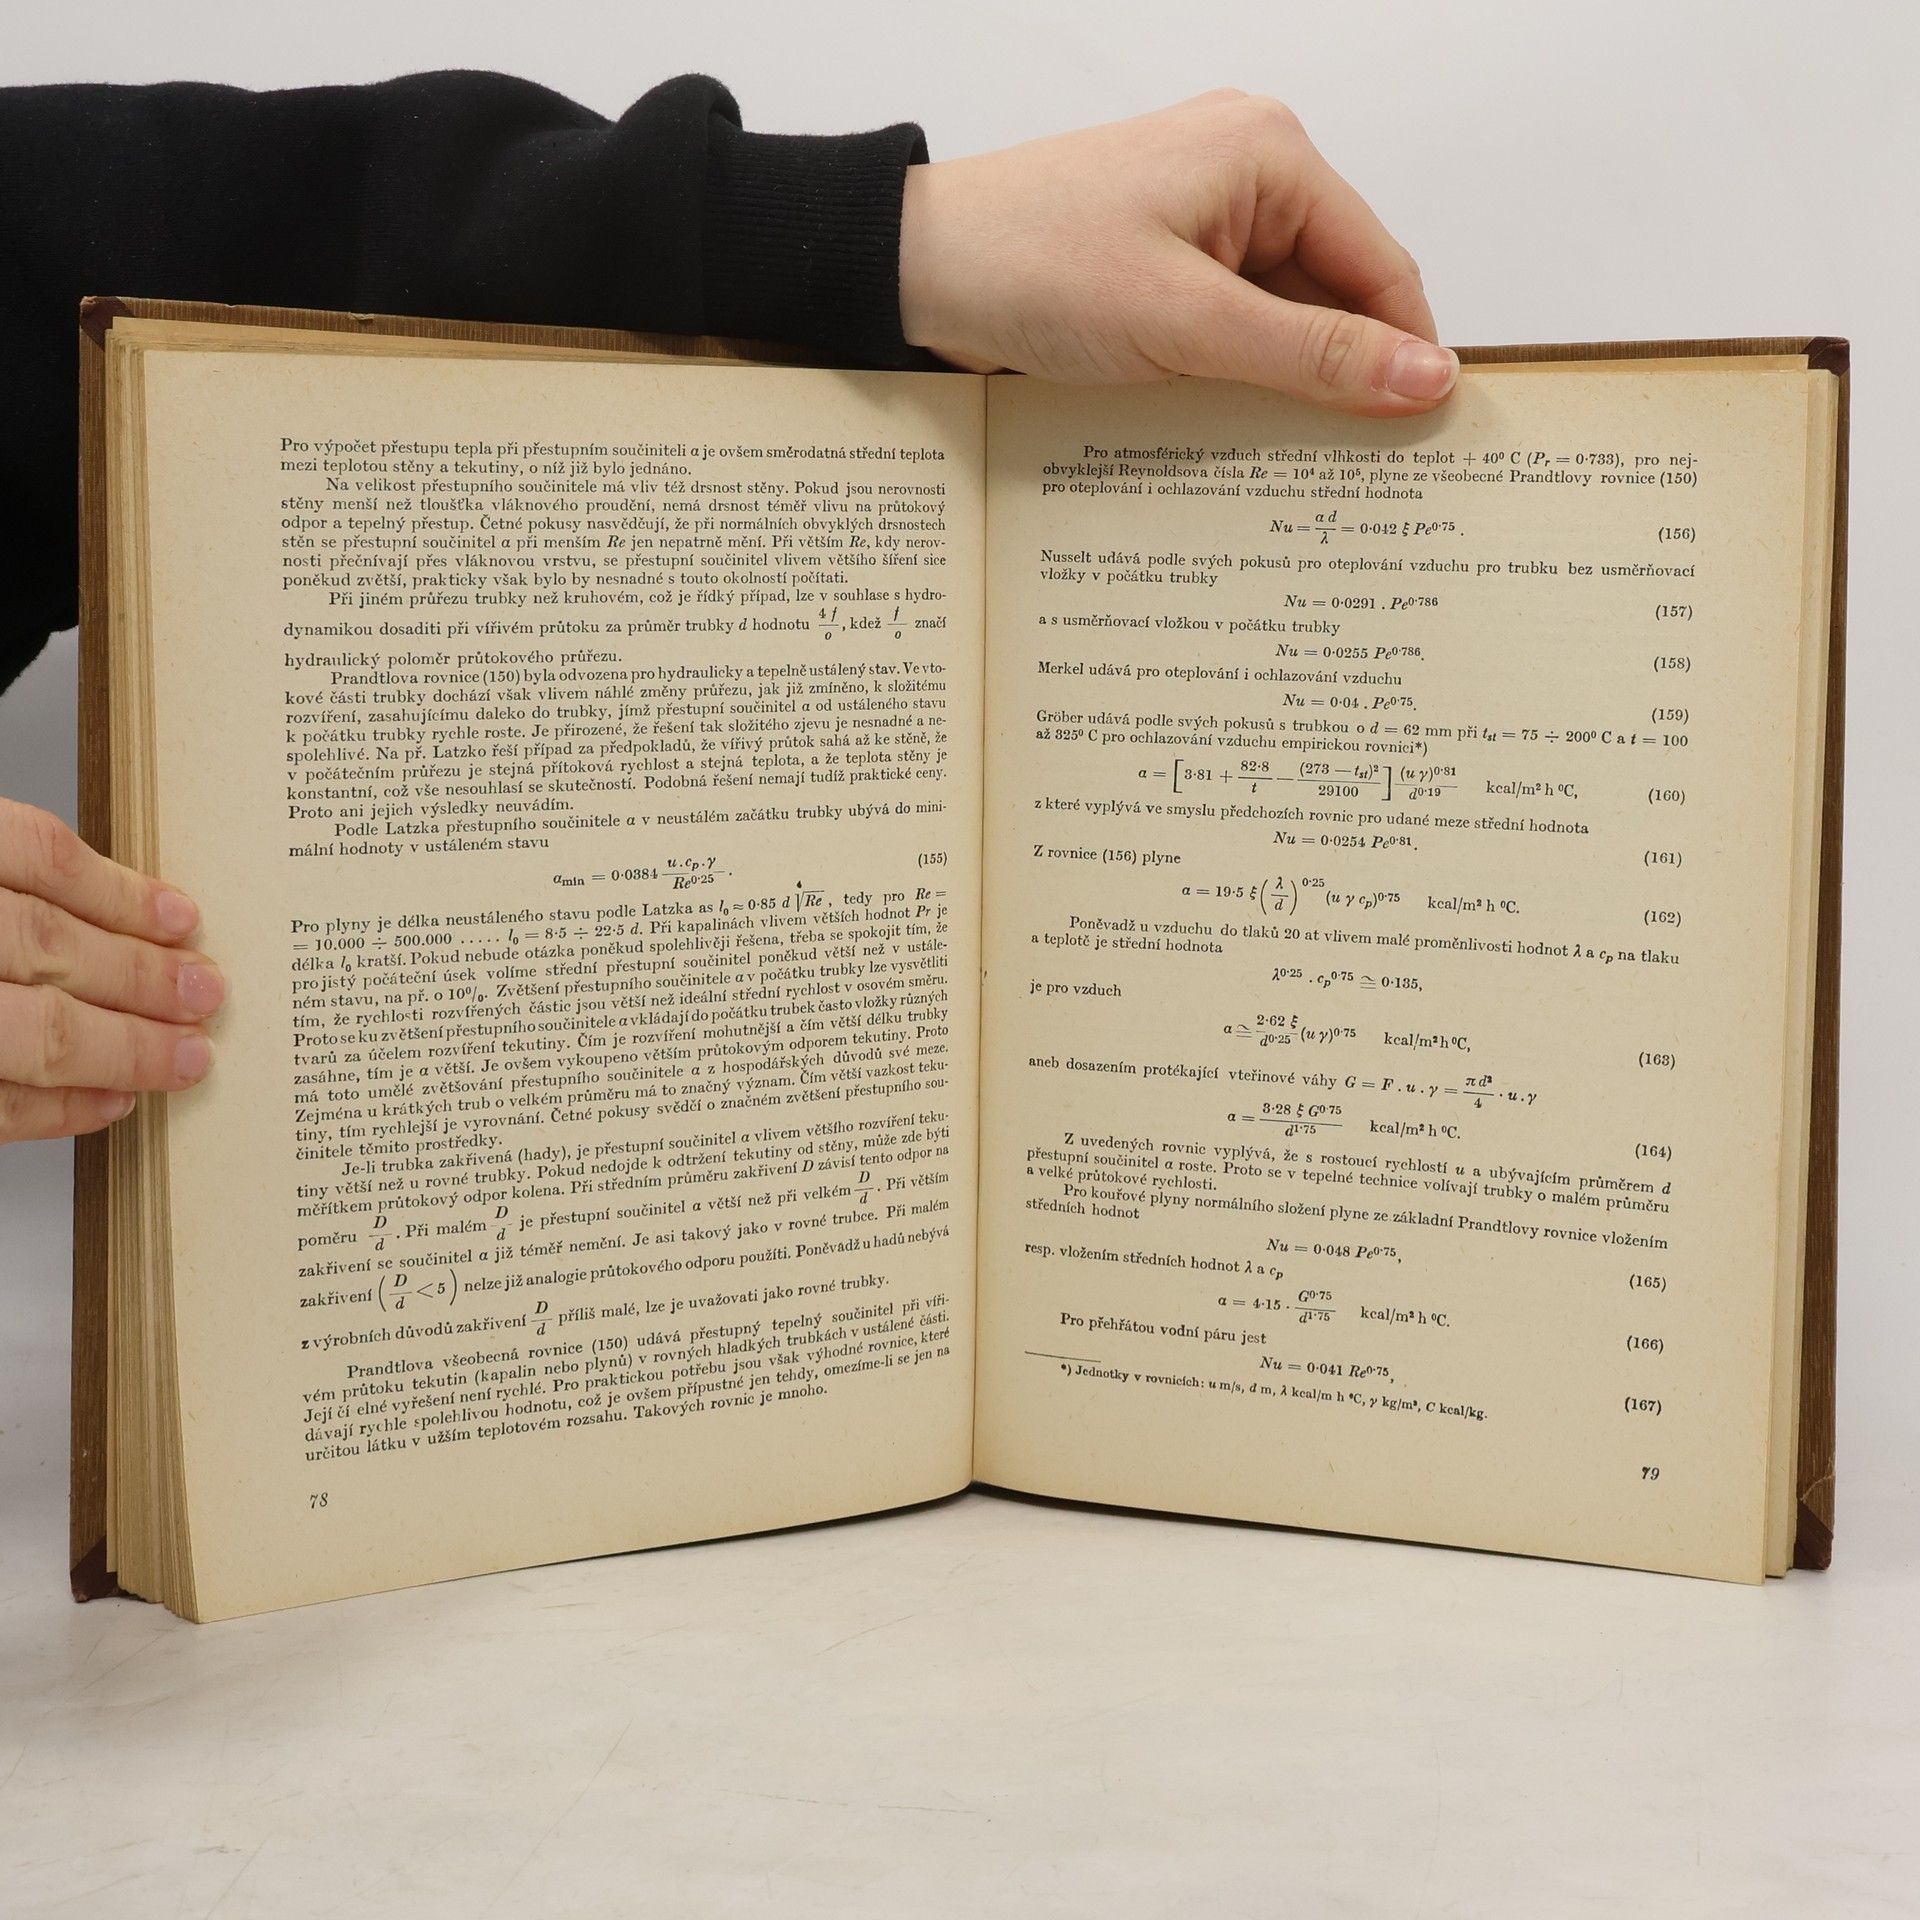 Pro výpočet přestupu tepla při přestupním součiniteli α je ovšem směrodatná střední teplota
mezi teplotou stěny a tekutiny, o níž již bylo jednáno.
Na velikost přestupního součinitele má vliv též drsnost stěny. Pokud jsou nerovnosti
stěny menší než tloušťka vláknového proudění, nemá drsnost téměř vlivu na průtokový
odpor a tepelný přestup. Četné pokusy nasvědčují, že při normálních obvyklých drsnostech
stěn se přestupní součinitel α při menším Re jen nepatrně mění. Při větším Re, kdy nerov-
nosti přečnívají přes vláknovou vrstvu, se přestupní součinitel vlivem většího šíření sice
poněkud zvětší, prakticky však bylo by nesnadné s touto okolností počítati.
Při jiném průřezu trubky než kruhovém, což je řídký případ, lze v souhlase s hydro-
dynamikou dosaditi při vířivém průtoku za průměr trubky d hodnotu 4 f / o, kdež f / o značí
hydraulický poloměr průtokového průřezu.
Prandtlova rovnice (150) byla odvozena pro hydraulicky a tepelně ustálený stav. Ve vto-
kové části trubky dochází však vlivem náhlé změny průřezu, jak již zmíněno, k složitému
rozvíření, zasahujícímu daleko do trubky, jímž přestupní součinitel α od ustáleného stavu
k počátku trubky rychle roste. Je přirozené, že řešení tak složitého zjevu je nesnadné a ne-
spolehlivé. Na př. Latzko řeší případ za předpokladů, že vířivý průtok sahá až ke stěně, že
v počátečním průřezu je stejná přítoková rychlost a stejná teplota, a že teplota stěny je
konstantní, což vše nesouhlasí se skutečností. Podobná řešení nemají tudíž praktické ceny.
Proto ani jejich výsledky neuvádím.
Podle Latzka přestupního součinitele α v neustálém začátku trubky ubývá do mini-
mální hodnoty v ustáleném stavu
α_min = 0·0384 u . c_p . γ / Re^0·25 . (155)
Pro plyny je délka neustáleného stavu podle Latzka as l₀ ≈ 0·85 d ⁴√Re , tedy pro Re =
= 10.000 ÷ 500.000 ..... l₀ = 8·5 ÷ 22·5 d. Při kapalinách vlivem větších hodnot Pr je
délka l₀ kratší. Pokud nebude otázka poněkud spolehlivěji řešena, třeba se spokojit tím, že
pro jistý počáteční úsek volíme střední přestupní součinitel poněkud větší než v ustále-
ném stavu, na př. o 10%. Zvětšení přestupního součinitele α v počátku trubky lze vysvětliti
tím, že rychlosti rozvířených částic jsou větší než ideální střední rychlost v osovém směru.
Proto se ku zvětšení přestupního součinitele α vkládají do počátku trubek často vložky různých
tvarů za účelem rozvíření tekutiny. Čím je rozvíření mohutnější a čím větší délku trubky
zasáhne, tím je α větší. Je ovšem vykoupeno větším průtokovým odporem tekutiny. Proto
má toto umělé zvětšování přestupního součinitele α z hospodářských důvodů své meze.
Zejména u krátkých trub o velkém průměru má to značný význam. Čím větší vazkost teku-
tiny, tím rychlejší je vyrovnání. Četné pokusy svědčí o značném zvětšení přestupního sou-
činitele těmito prostředky.
Je-li trubka zakřivená (hady), je přestupní součinitel α vlivem většího rozvíření teku-
tiny větší než u rovné trubky. Pokud nedojde k odtržení tekutiny od stěny, může zde býti
měřítkem průtokový odpor kolena. Při středním průměru zakřivení D závisí tento odpor na
poměru D / d . Při malém D / d je přestupní součinitel α větší než při velkém D / d . Při větším
zakřivení se součinitel α již téměř nemění. Je asi takový jako v rovné trubce. Při malém
zakřivení (D / d < 5) nelze již analogie průtokového odporu použíti. Poněvadž u hadů nebývá
z výrobních důvodů zakřivení D / d příliš malé, lze je uvažovati jako rovné trubky.
Prandtlova všeobecná rovnice (150) udává přestupný tepelný součinitel při víři-
vém průtoku tekutin (kapalin nebo plynů) v rovných hladkých trubkách v ustálené části.
Její čí elné vyřešení není rychlé. Pro praktickou potřebu jsou však výhodné rovnice, které
dávají rychle spolehlivou hodnotu, což je ovšem přípustné jen tehdy, omezíme-li se jen na
určitou látku v užším teplotovém rozsahu. Takových rovnic je mnoho.
78
Pro atmosférický vzduch střední vlhkosti do teplot + 40⁰ C (P_r = 0·733), pro nej-
obvyklejší Reynoldsova čísla Re = 10⁴ až 10⁵, plyne ze všeobecné Prandtlovy rovnice (150)
pro oteplování i ochlazování vzduchu střední hodnota
Nu = α d / λ = 0·042 ξ Pe^0·75 . (156)
Nusselt udává podle svých pokusů pro oteplování vzduchu pro trubku bez usměrňovací
vložky v počátku trubky
Nu = 0·0291 . Pe^0·786 (157)
a s usměrňovací vložkou v počátku trubky
Nu = 0·0255 Pe^0·786. (158)
Merkel udává pro oteplování i ochlazování vzduchu
Nu = 0·04 . Pe^0·75. (159)
Gröber udává podle svých pokusů s trubkou o d = 62 mm při t_st = 75 ÷ 200⁰ C a t = 100
až 325⁰ C pro ochlazování vzduchu empirickou rovnici*)
α = [3·81 + 82·8 / t − (273 − t_st)² / 29100] (u γ)^0·81 / d^0·19 kcal/m² h ⁰C, (160)
z které vyplývá ve smyslu předchozích rovnic pro udané meze střední hodnota
Nu = 0·0254 Pe^0·81. (161)
Z rovnice (156) plyne
α = 19·5 ξ (λ / d)^0·25 (u γ c_p)^0·75 kcal/m² h ⁰C. (162)
Poněvadž u vzduchu do tlaků 20 at vlivem malé proměnlivosti hodnot λ a c_p na tlaku
a teplotě je střední hodnota
λ^0·25 . c_p^0·75 ≅ 0·135,
je pro vzduch
α ≅ 2·62 ξ / d^0·25 (u γ)^0·75 kcal/m² h ⁰C, (163)
aneb dosazením protékající vteřinové váhy G = F . u . γ = π d² / 4 . u . γ
α = 3·28 ξ G^0·75 / d^1·75 kcal/m² h ⁰C. (164)
Z uvedených rovnic vyplývá, že s rostoucí rychlostí u a ubývajícím průměrem d
přestupní součinitel α roste. Proto se v tepelné technice volívají trubky o malém průměru
a velké průtokové rychlosti.
Pro kouřové plyny normálního složení plyne ze základní Prandtlovy rovnice vložením
středních hodnot
Nu = 0·048 Pe^0·75, (165)
resp. vložením středních hodnot λ a c_p
α = 4·15 . G^0·75 / d^1·75 kcal/m² h ⁰C. (166)
Pro přehřátou vodní páru jest
Nu = 0·041 Re^0·75, (167)
*) Jednotky v rovnicích: u m/s, d m, λ kcal/m h ⁰C, γ kg/m³, C kcal/kg.
79